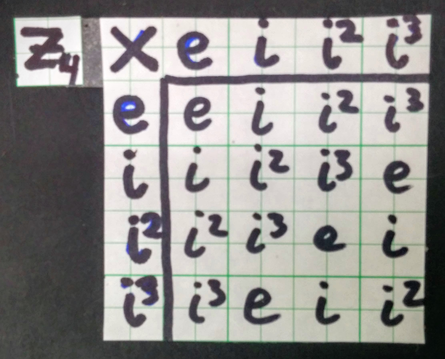 Z₄ X e i i² i³
e e i i² i³
i i i² i³ e
i² i² i³ e i
i³ i³ e i i²